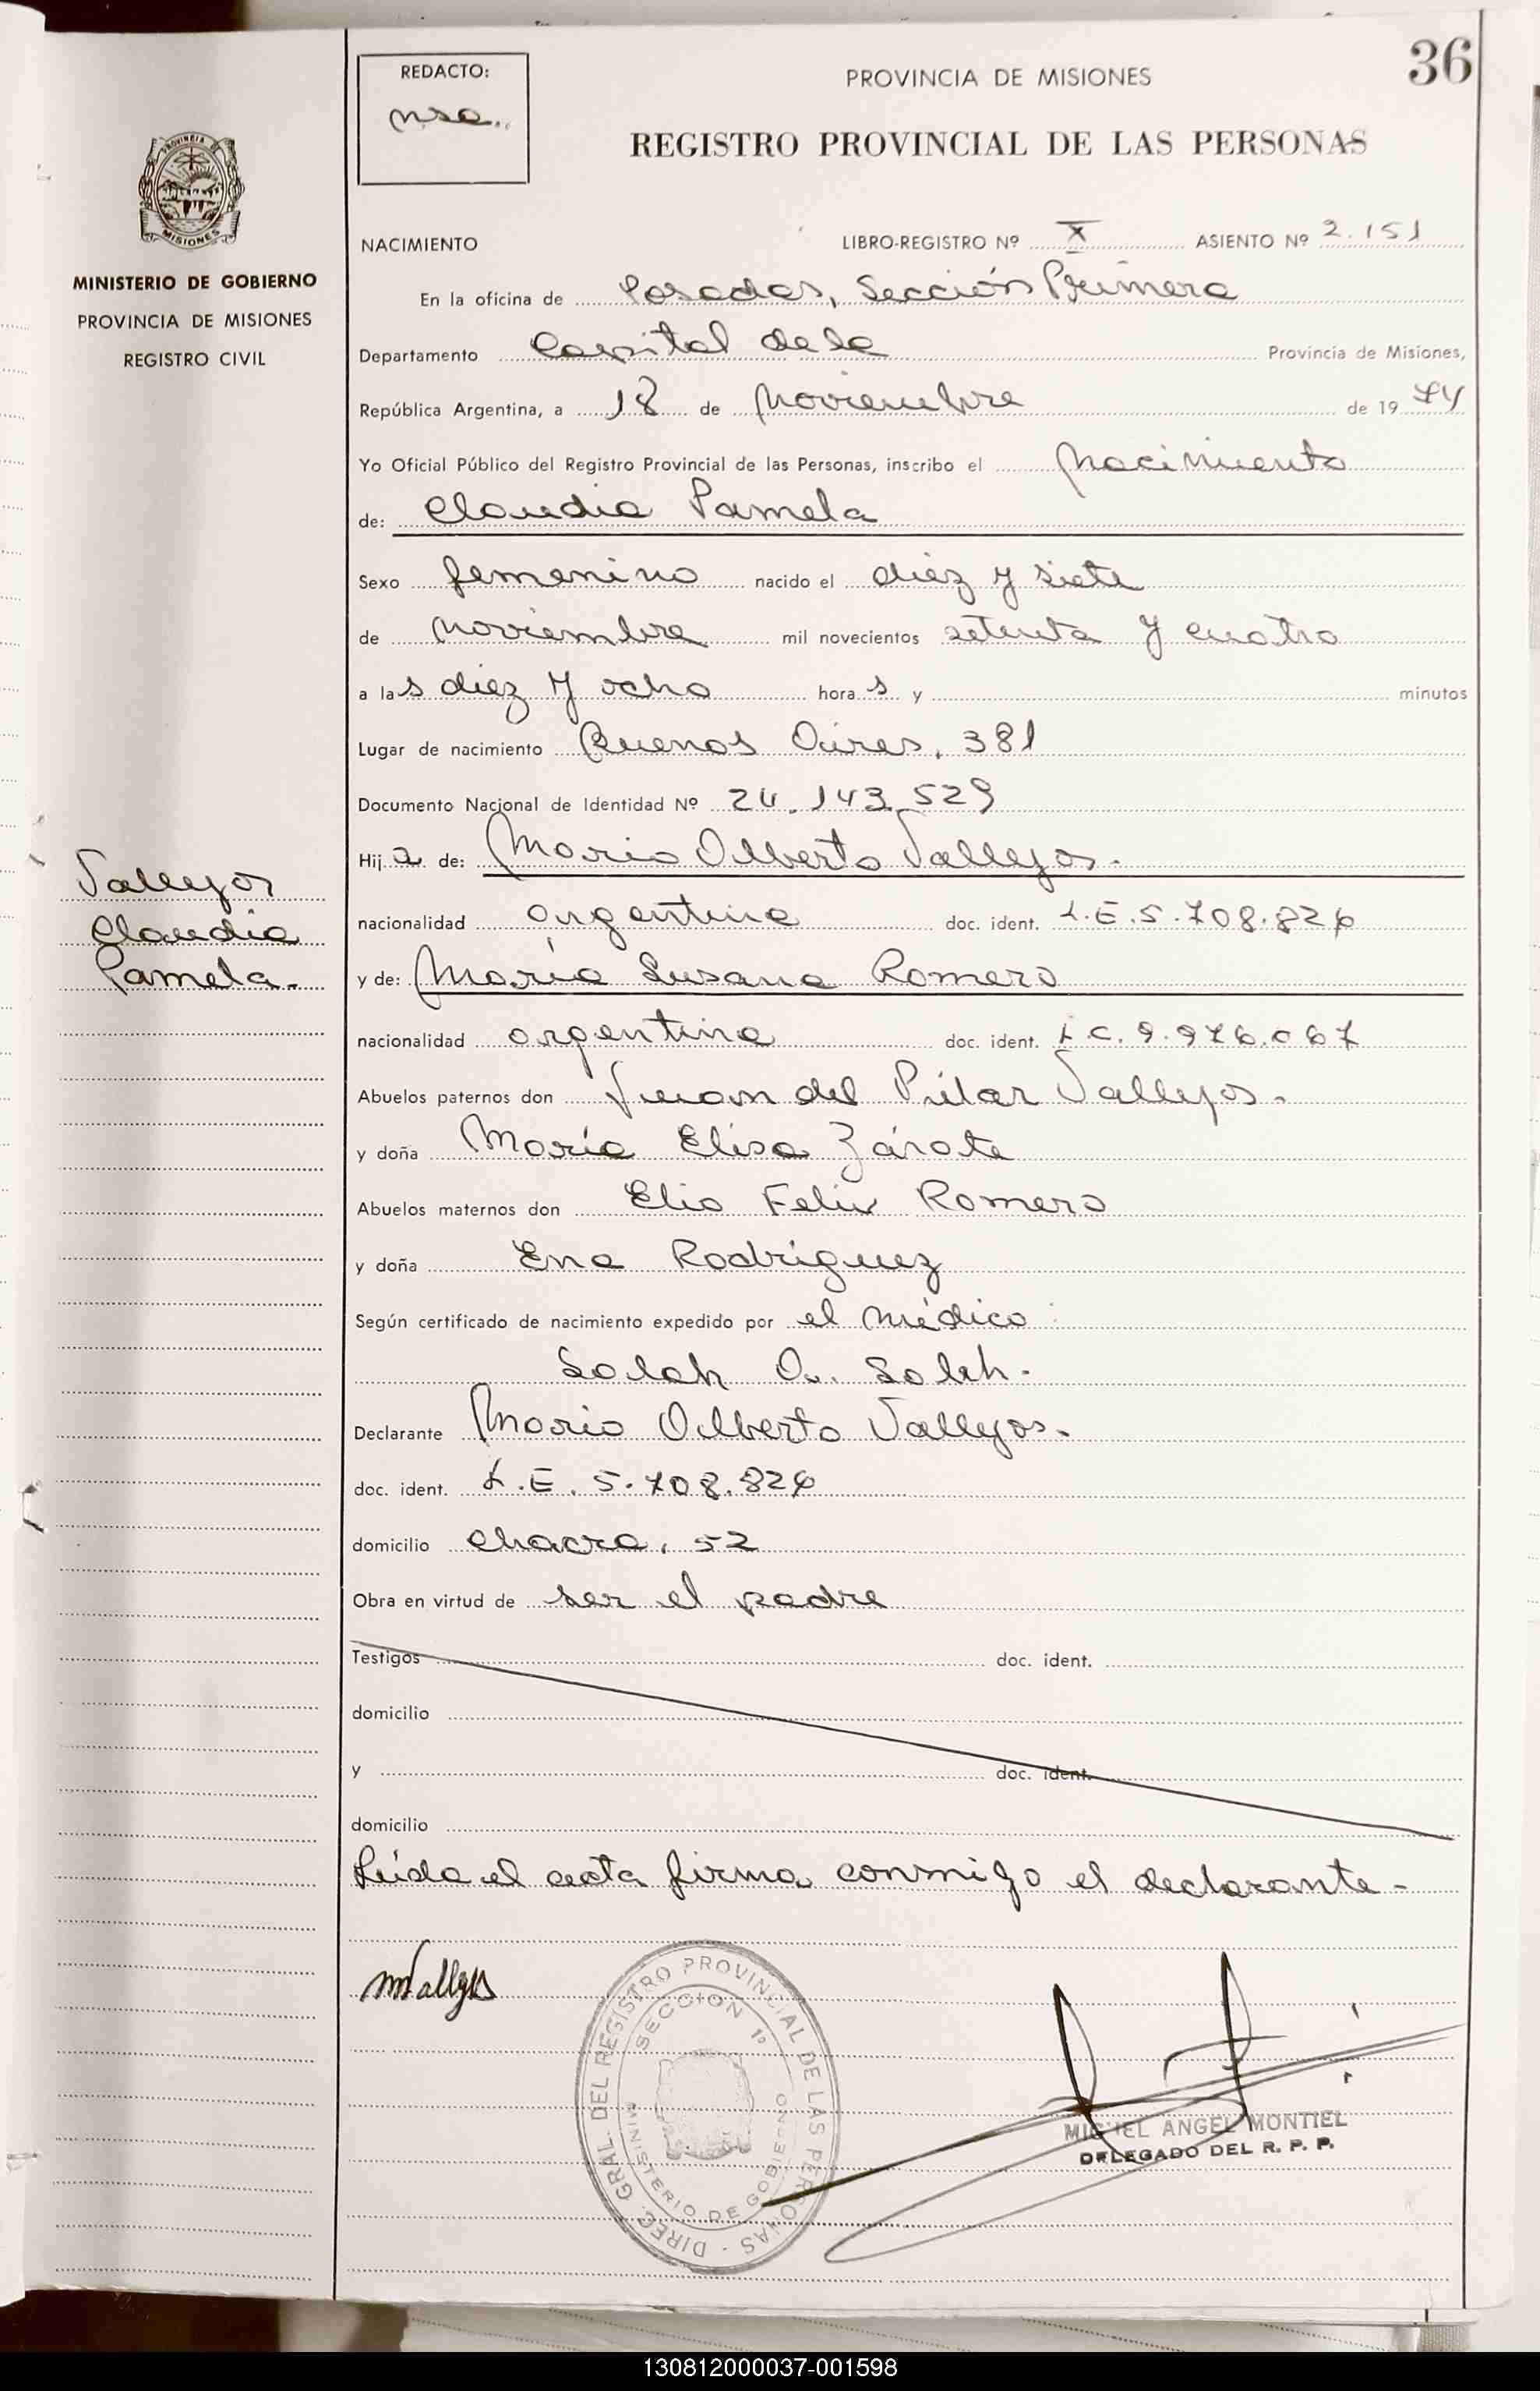 36
REDACTO:
PROVINCIA DE MISIONES
REGISTRO PROVINCIAL DE LAS PERSONAS
NACIMIENTO LIBRO-REGISTRO Nº X ASIENTO Nº 2.151
MISIONES
MINISTERIO DE GOBIERNO
PROVINCIA DE MISIONES
REGISTRO CIVIL
En la oficina de Posadas, Sección Primera
Departamento Capital de la Provincia de Misiones,
República Argentina, a 18 de Noviembre de 19 74
Yo Oficial Público del Registro Provincial de las Personas, inscribo el Nacimiento
de: Claudia Pamela
Sexo femenino nacido el diez y siete
de noviembre mil novecientos setenta y cuatro
a las diez y ocho horas y minutos
Lugar de nacimiento Buenos Aires, 381
Documento Nacional de Identidad Nº 24.143.529
Hija de: Mario Alberto Vallejos.
nacionalidad argentina doc. ident. L.E.5.708.826
y de: María Susana Romero
nacionalidad argentina doc. ident. L.C.9.976.067
Abuelos paternos don Juan del Pilar Vallejos.
y doña María Elisa Zárate
Abuelos maternos don Elio Felix Romero
y doña Ena Rodríguez
Según certificado de nacimiento expedido por el médico
Saleh A. Saleh.
Declarante Mario Alberto Vallejos.
doc. ident. L.E. 5.708.826
domicilio chacra, 52
Obra en virtud de ser el padre
Testigos doc. ident.
domicilio
y doc. ident.
domicilio
Leída el acta firma conmigo el declarante-
Vallejos
Claudia
Pamela.
MVallejos
DIREC. GRAL. DEL REGISTRO PROVINCIAL DE LAS PERSONAS -
SECCION 1º
MINISTERIO DE GOBIERNO
MIGUEL ANGEL MONTIEL
DELEGADO DEL R. P. P.
130812000037-001598